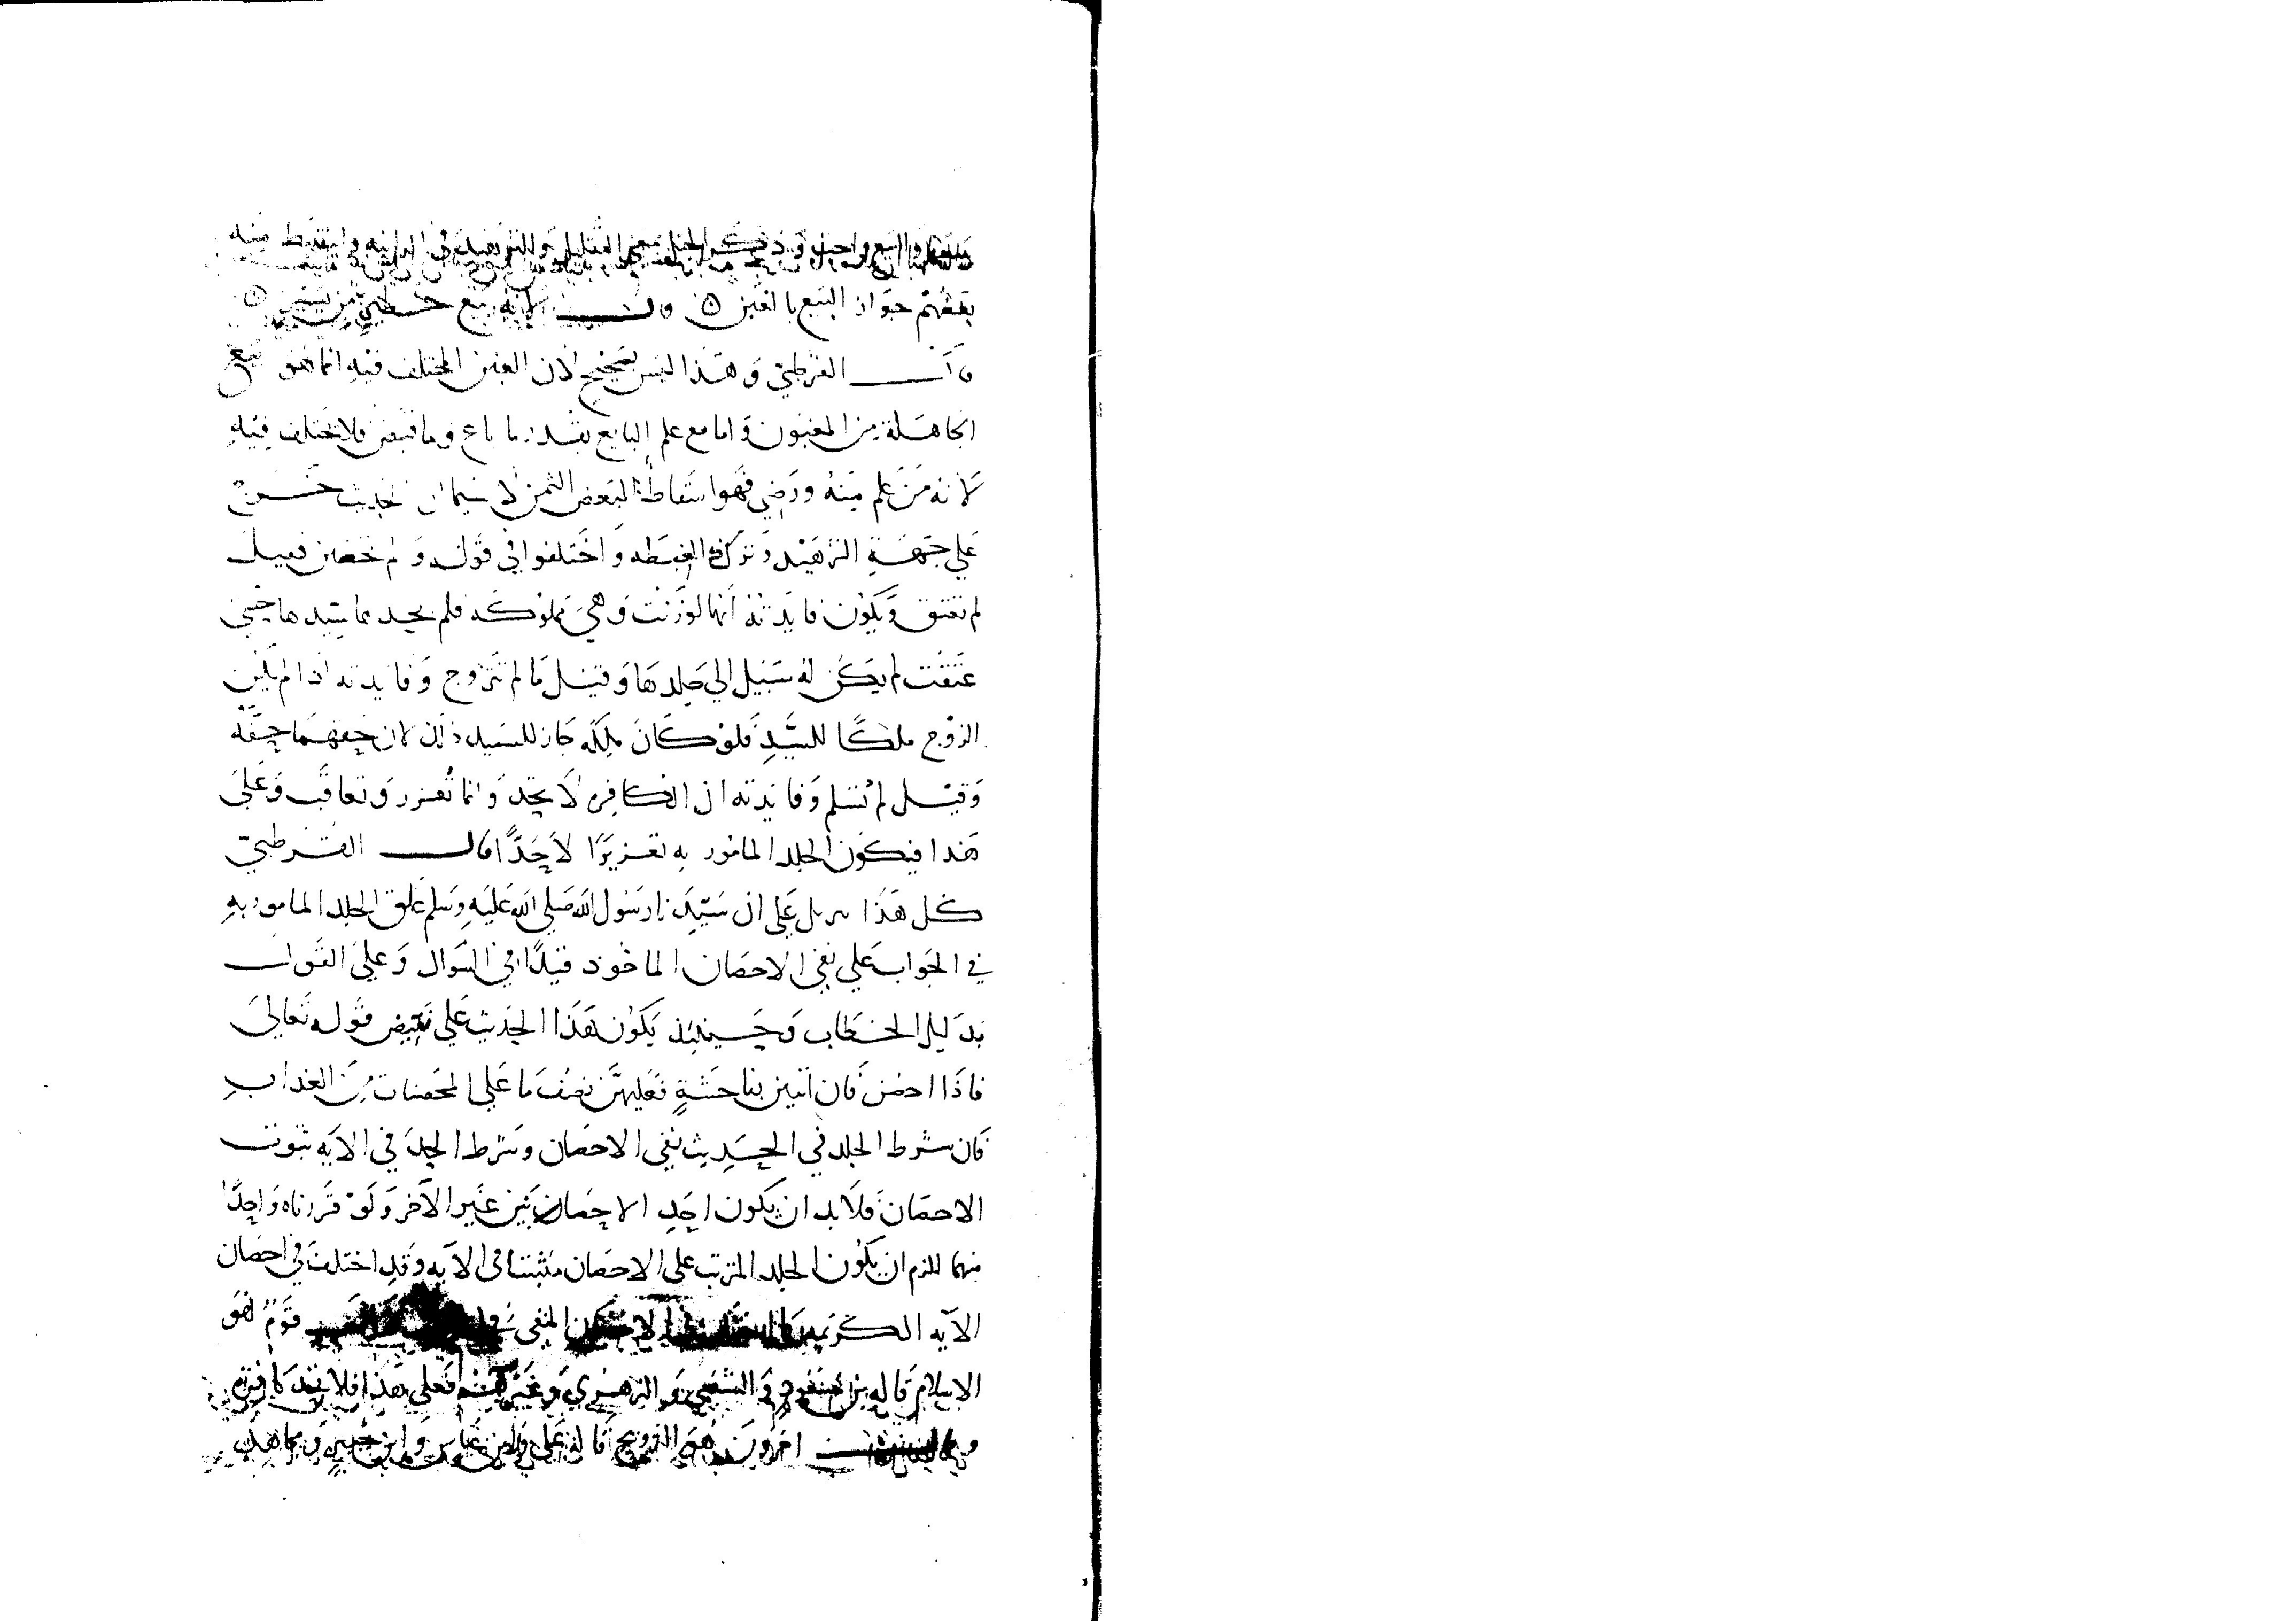 والبيع واجب وذكر الحبل بمعنى التقليل والتزهيد في الزانيه واستنبط منه
بعضهم جواز البيع بالغبن قال لانه بيع خطير بثمن يسير
قال القرطبي وهذا ليس بصحيح لان الغبن المختلف فيه انما هو بيع
الجاهلة من المغبون واما مع علم البايع بقدر ما باع وما قبض فلا يختلف فيه
لانه من علم منه ورضي فهو اسقاط لبعض الثمن لا سيما ان الحديث خرج
على جهة التزهيد وترك الغبطه واختلفوا في قوله ولم تحصن فقيل
لم تعتق ويكون فايدته انها لو زنت وهي مملوكه فلم يحدها سيدها حتى
عتقت لم يكن له سبيل الى جلدها وقيل ما لم تتزوج وفايدته اذا لم يكن
الزوج ملكا للسيد فلو كان ملكه جاز للسيد ذلك لان حقهما حقه
وقيل لم تسلم وفايدته ان الكافره لا تحد وانما تعزر وتعاقب وعلى
هذا فيكون الجلد المامور به تعزيرا لا حدا قال القرطبي
كل هذا يدل على ان سيدنا رسول الله صلى الله عليه وسلم علق الجلد المامور به
في الجواب على نفي الاحصان الماخوذ قيدا في السوال وعلى القول
بدليل الخطاب وحينئذ يكون هذا الحديث على نقيض قوله تعالى
فاذا احصن فان اتين بفاحشة فعليهن نصف ما على المحصنات من العذاب
فان شرط الجلد في الحديث نفي الاحصان وشرط الجلد في الايه ثبوت
الاحصان فلا بد ان يكون احد الاحصانين غير الاخر ولو قررناه واحدا
منهما للزم ان يكون الجلد المترتب على الاحصان مثبتا في الايه وقد اختلف في احصان
الآيه الكريمه المنفي قوم هو
الاسلام قاله بن مسعود والشعبي والزهري وغيرهم فعلى هذا فلا تحد كافره
اخرون هو التزويج قاله على وابن عباس وابن جبير ومجاهد